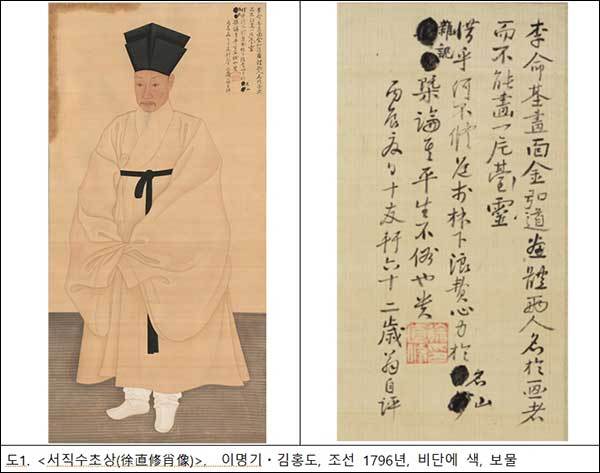 李命基畫面金弘道畫體兩人名於画者
而不能畫一片臺靈
惜乎何不修道於林下浪費心力於名山
雜記槩論其平生不俗也貴
丙辰夏日十友軒六十二歲翁自評
도1. <서직수초상(徐直修肖像)>, 이명기・김홍도, 조선 1796년, 비단에 색, 보물